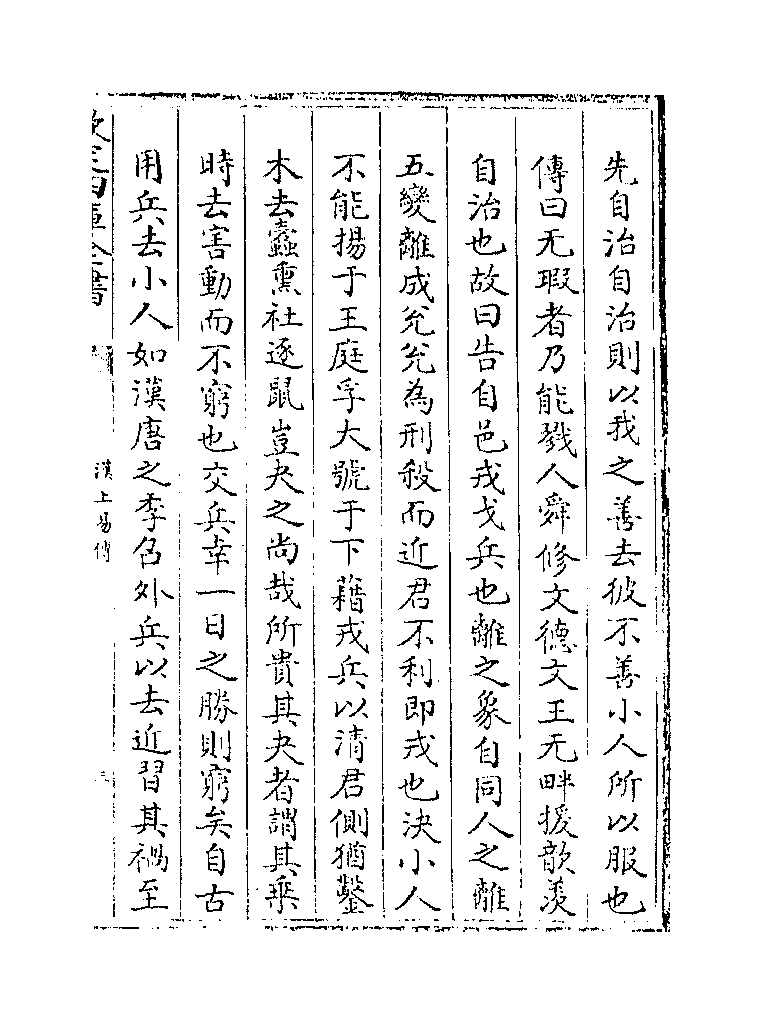 先自治自治則以我之善去彼不善小人所以服也
傳曰无瑕者乃能戮人舜修文德文王无畔援歆羡
自治也故曰告自邑戎戈兵也離之象自同人之離
五變離成兊兊為刑殺而近君不利即戎也決小人
不能揚于王庭孚大號于下藉戎兵以清君側猶鑿
木去蠧熏社逐鼠豈夬之尚哉所貴其夬者謂其乗
時去害動而不窮也交兵幸一日之勝則窮矣自古
用兵去小人如漢唐之季召外兵以去近習其禍至
欽定四庫全書
漢上易傳